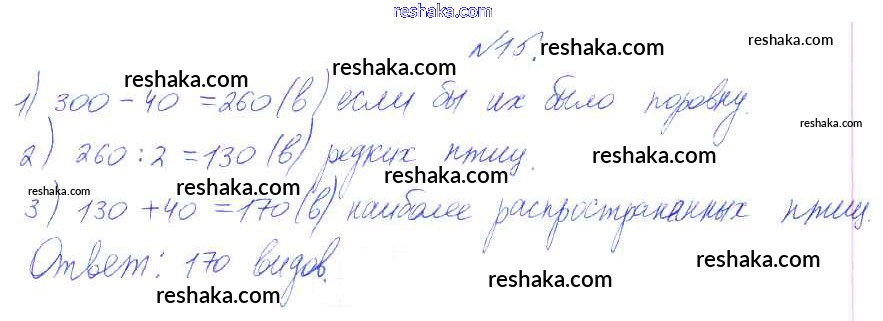 reshaka.com
№15. reshaka.com reshaka.com
reshaka.com reshaka.com
1) 300 - 40 = 260 (в) если бы их было поровну.
reshaka.com
2) 260 : 2 = 130 (в) редких птиц. reshaka.com
reshaka.com reshaka.com reshaka.com
3) 130 + 40 = 170 (в) наиболее распространенных птиц.
Ответ: 170 видов.
reshaka.com reshaka.com
reshaka.com reshaka.com